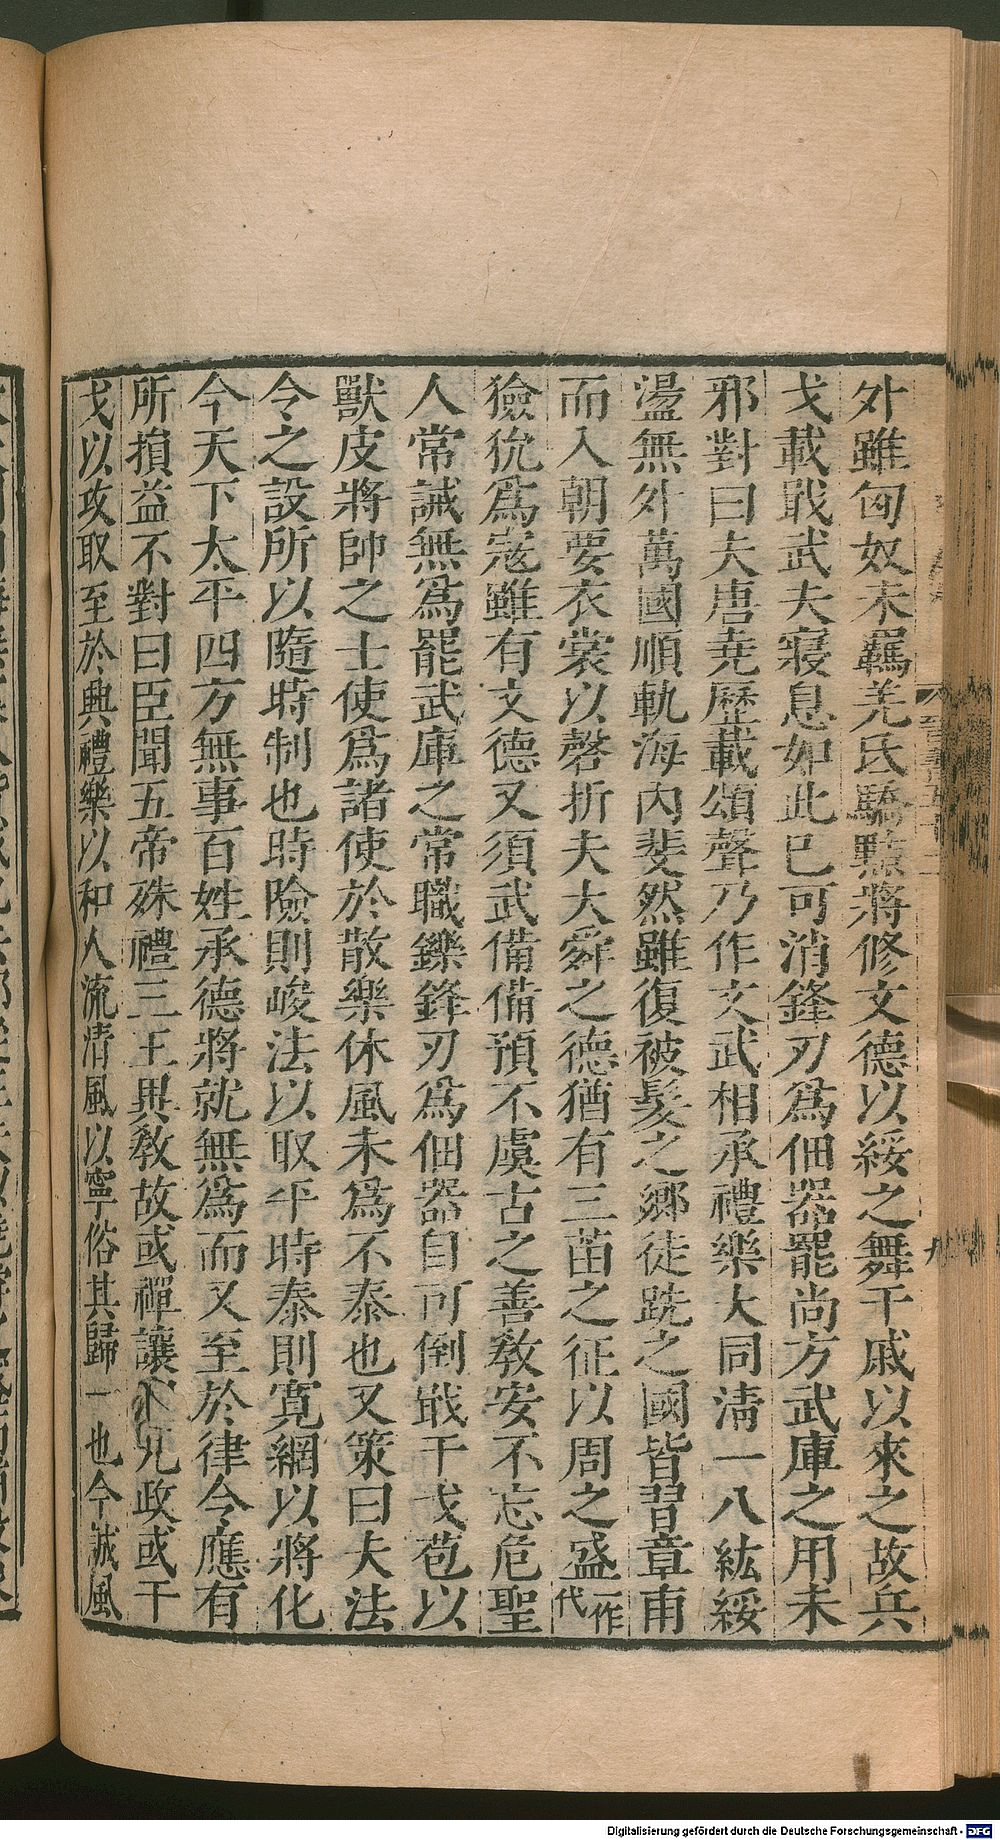 外雖匈奴未羈羌氐驕黠將修文德以綏之舞干戚以來之故兵
戈載戢武夫寢息如此已可消鋒刃爲佃器罷尚方武庫之用未
邪對曰夫唐堯歷載頌聲乃作文武相承禮樂大同淸一八紘綏
盪無外萬國順軌海內斐然雖復被髮之鄉徒跣之國皆習章甫
而入朝要衣裳以磬折夫大舜之德猶有三苗之征以周之盛一作代
獫狁爲寇雖有文德又須武備備預不虞古之善敎安不忘危聖
人常誡無爲罷武庫之常職鑠鋒刃爲佃器自可倒戢干戈苞以
獸皮將帥之士使爲諸使於散樂休風未爲不泰也又策曰夫法
令之設所以隨時制也時險則峻法以取平時泰則寬網以將化
今天下太平四方無事百姓承德將就無爲而又至於律令應有
所損益不對曰臣聞五帝殊禮三王異敎故或禪讓以光政或干
戈以攻取至於興禮樂以和人流淸風以寧俗其歸一也今誠風
九
Digitalisierung gefördert durch die Deutsche Forschungsgemeinschaft - DFG